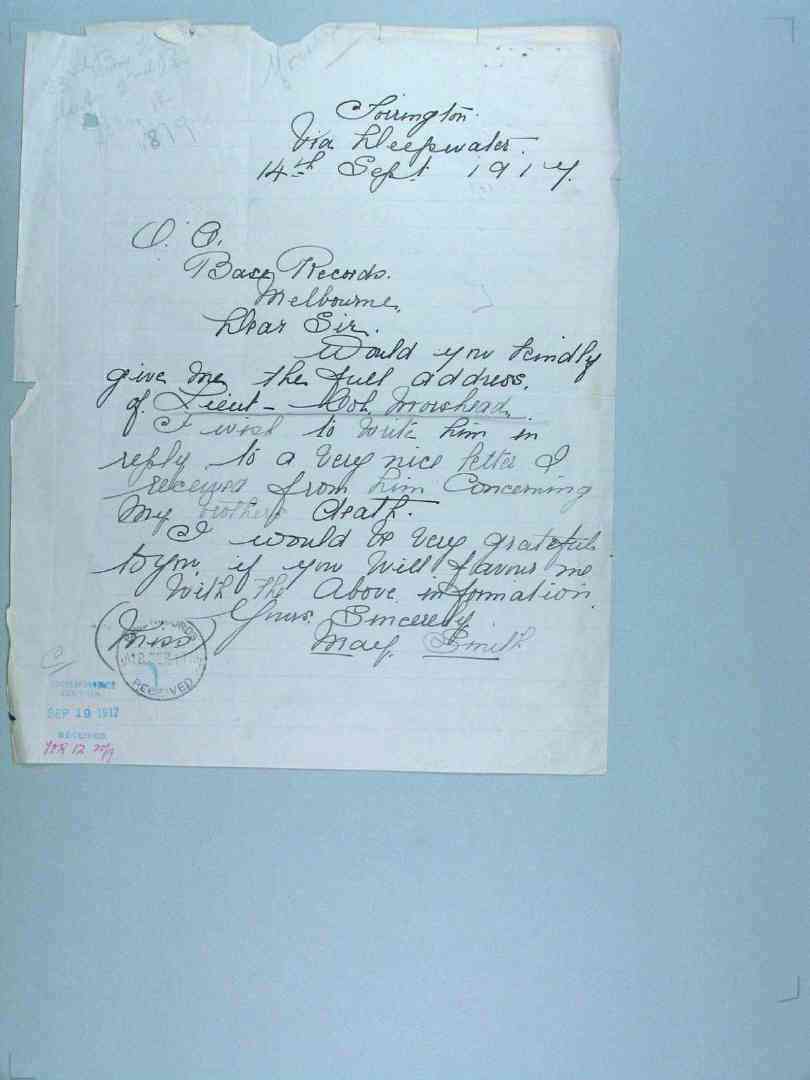 1879
Torrington.
Via Deepwater.
14th Sept 1917.
O. C.
Base Records.
Melbourne.
Dear Sir.
Would you kindly
give me the full address.
of. Lieut - Col. Morshead.
I wish to write him in
reply to a very nice letter I
received from him concerning
my brothers death.
I would be very grateful
to you, if you will favour me
with the above information.
Yours. Sincerely
Miss May. Smith
RECEIVED
SEP 19 1917
RECEIVED